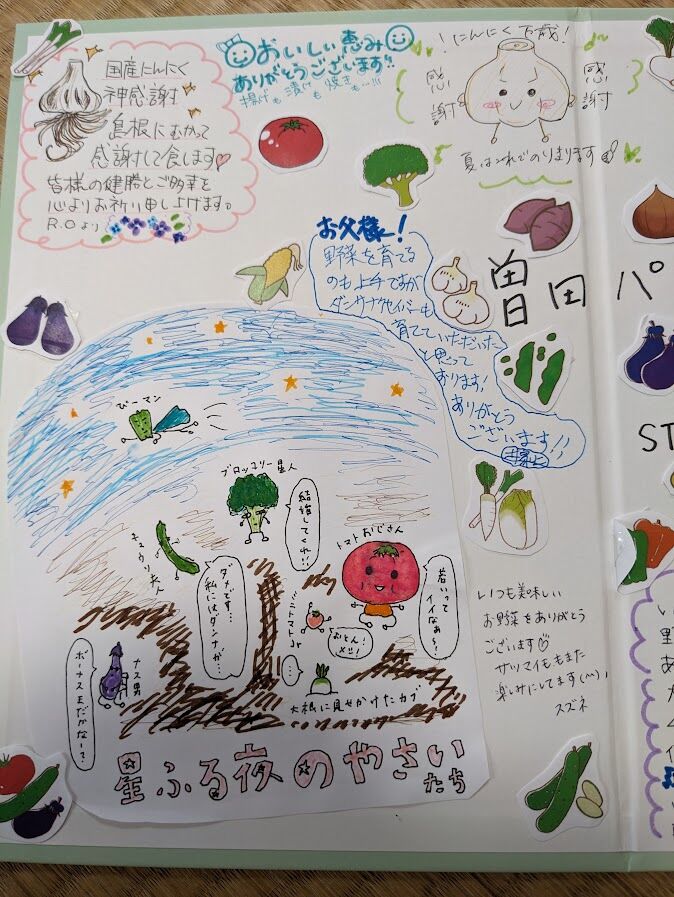 国産にんにく
神感謝
島根にむかって
感謝して食します♡
皆様の健勝とご多幸を
心よりお祈り申し上げます。
R.Oより
おいしい恵み
ありがとうございます!!
揚げも漬けも焼きも…!!!
！にんにく万歳！
感謝
感謝
夏はこれでのりきります
お父様！
野菜を育てる
のも上手ですが
ダンサナクセイバーも
育てていただいた
と思って
おります！
ありがとう
ございます!!
曽田パ
ST
ぴーマン
ブロッコリー星人
結婚してくれ!!
キュウリ夫人
ダメです…
私にはダンナが…
トマトおじさん
若いって
イイなぁ〜！
ミニトマトJr
おとん！
メシ！
…
大根に見せかけたカブ
ナス男
ボーナスまだかなー？
星ふる夜のやさいたち
いつも美味しい
お野菜をありがとう
ございます♡
サツマイモもまた
楽しみにしてます(^^)！
スズネ